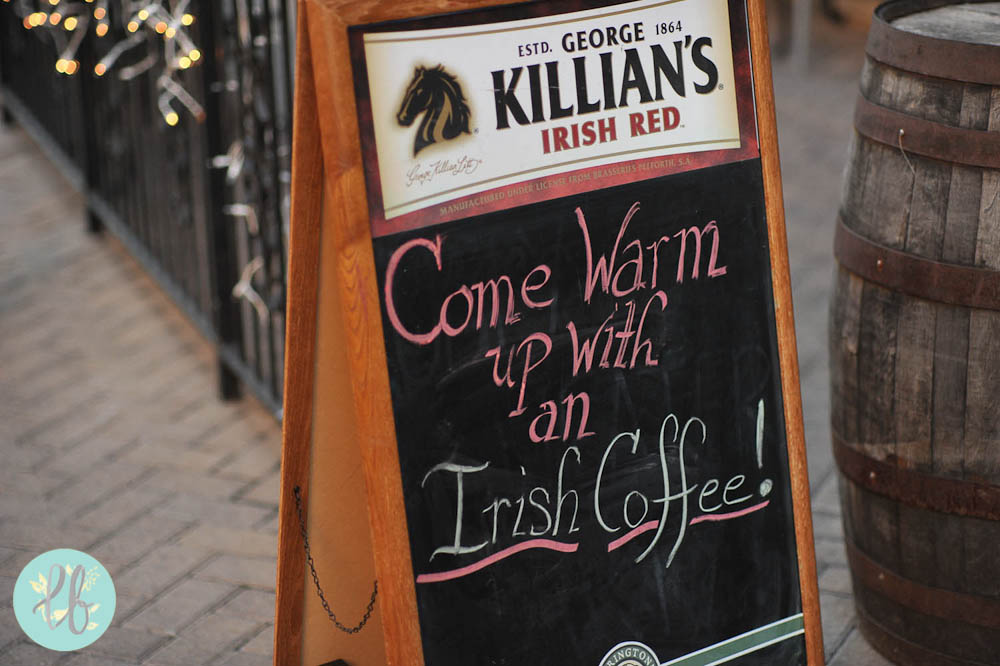 ESTD. GEORGE 1864
KILLIAN'S
IRISH RED
George Killian Lett
MANUFACTURED UNDER LICENSE FROM BRASSERIES PELFORTH, S.A.
Come Warm
up with
an
Irish Coffee!
lf